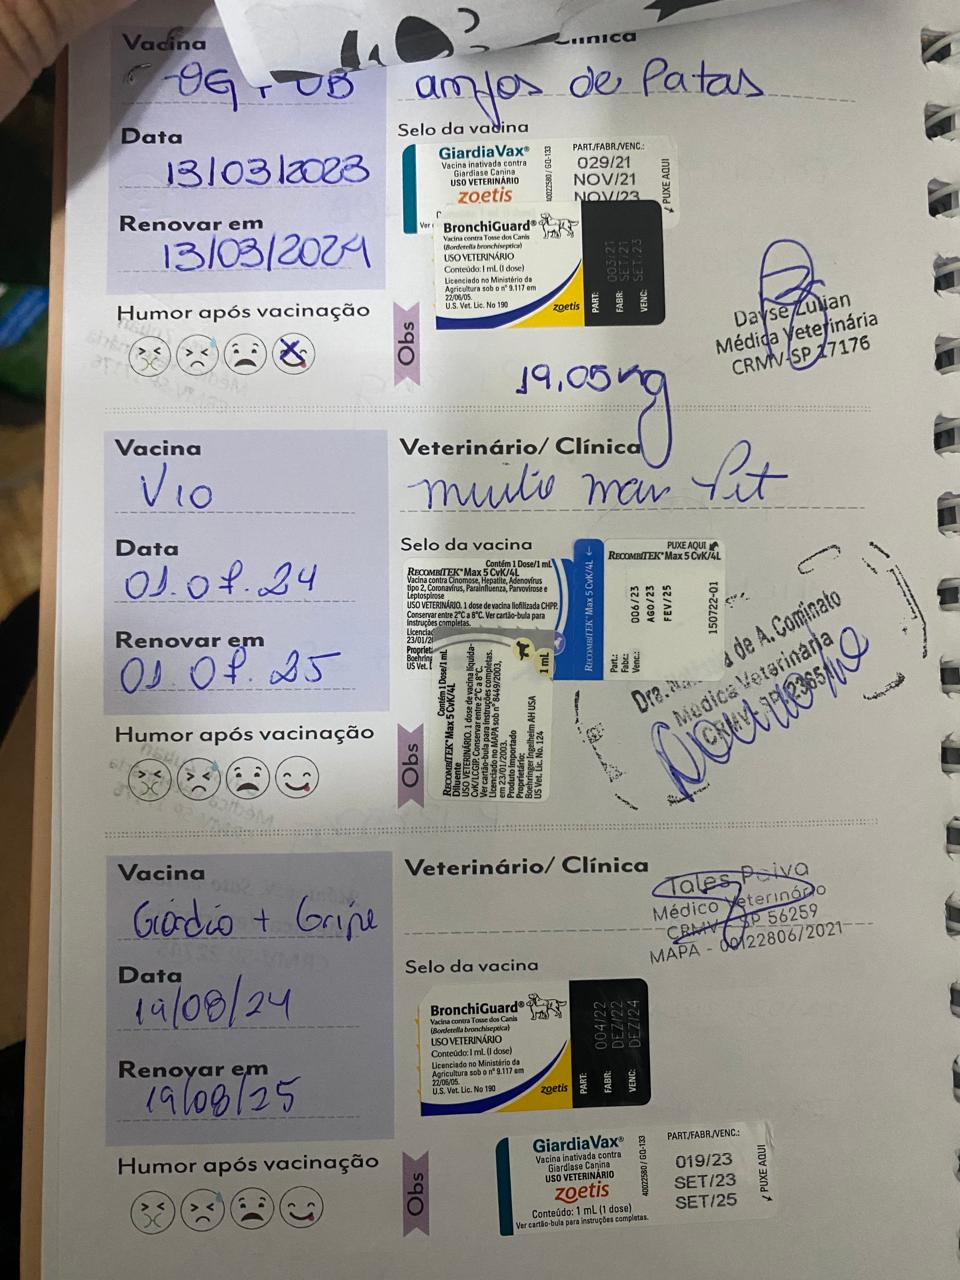 Vacina
Clínica
anjos de Patas
Data
13/03/2023
Renovar em
13/03/2024
Humor após vacinação
Selo da vacina
GiardiaVax®
Vacina inativada contra
Giardíase Canina
USO VETERINÁRIO
zoetis
40022580 / GO-133
PART/FABR/VENC.:
029/21
NOV/21
NOV/23
PUXE AQUI
BronchiGuard®
Vacina contra Tosse dos Canis
(Bordetella bronchiseptica)
USO VETERINÁRIO
Conteúdo: 1 mL (1 dose)
Licenciado no Ministério da
Agricultura sob o nº 9.117 em
22/06/05.
U.S. Vet. Lic. No 190
zoetis
PART: 003/21
FABR: SET/21
VENC: SET/23
Obs
19,05 kg
Dayse Zulian
Médica Veterinária
CRMV-SP 17176
Vacina
V10
Data
01.07.24
Renovar em
01.07.25
Humor após vacinação
Veterinário/ Clínica
muito mais Pet
Selo da vacina
Contém 1 Dose/1 mL
RECOMBITEK® Max 5 CvK/4L
Vacina contra Cinomose, Hepatite, Adenovírus
tipo 2, Coronavírus, Parainfluenza, Parvovirose e
Leptospirose
USO VETERINÁRIO. 1 dose de vacina liofilizada CHPP.
Conservar entre 2°C a 8°C. Ver cartão-bula para
instruções completas.
RECOMBITEK® Max 5 CvK/4L
PUXE AQUI
RECOMBITEK® Max 5 CvK/4L
Part.: 006/23
Fabc: AGO/23
Venc.: FEV/25
150722-01
Contém 1 Dose/1 mL
RECOMBITEK® Max 5 CvK/4L
Diluente
USO VETERINÁRIO. 1 dose de vacina líquida-
CvK/LCGIP. Conservar entre 2°C a 8°C.
Ver cartão-bula para instruções completas.
Licenciado no MAPA sob nº 8449/2003,
em 23/01/2003.
Produto Importado
Proprietário:
Boehringer Ingelheim AH USA
US Vet. Lic. No. 124
1 mL
Obs
Dra. de A. Cominato
Médica Veterinária
Vacina
Giárdia + Gripe
Data
19/08/24
Renovar em
19/08/25
Humor após vacinação
Veterinário/ Clínica
Tales Paiva
Médico Veterinário
CRMV SP 56259
MAPA - 00122806/2021
Selo da vacina
BronchiGuard®
Vacina contra Tosse dos Canis
(Bordetella bronchiseptica)
USO VETERINÁRIO
Conteúdo: 1 mL (1 dose)
Licenciado no Ministério da
Agricultura sob o nº 9.117 em
22/06/05.
U.S. Vet. Lic. No 190
zoetis
PART: 004/22
FABR: DEZ/22
VENC: DEZ/24
Obs
GiardiaVax®
Vacina inativada contra
Giardíase Canina
USO VETERINÁRIO
zoetis
Conteúdo: 1 mL (1 dose)
Ver cartão-bula para instruções completas.
40022580 / GO-133
PART./FABR./VENC.:
019/23
SET/23
SET/25
PUXE AQUI